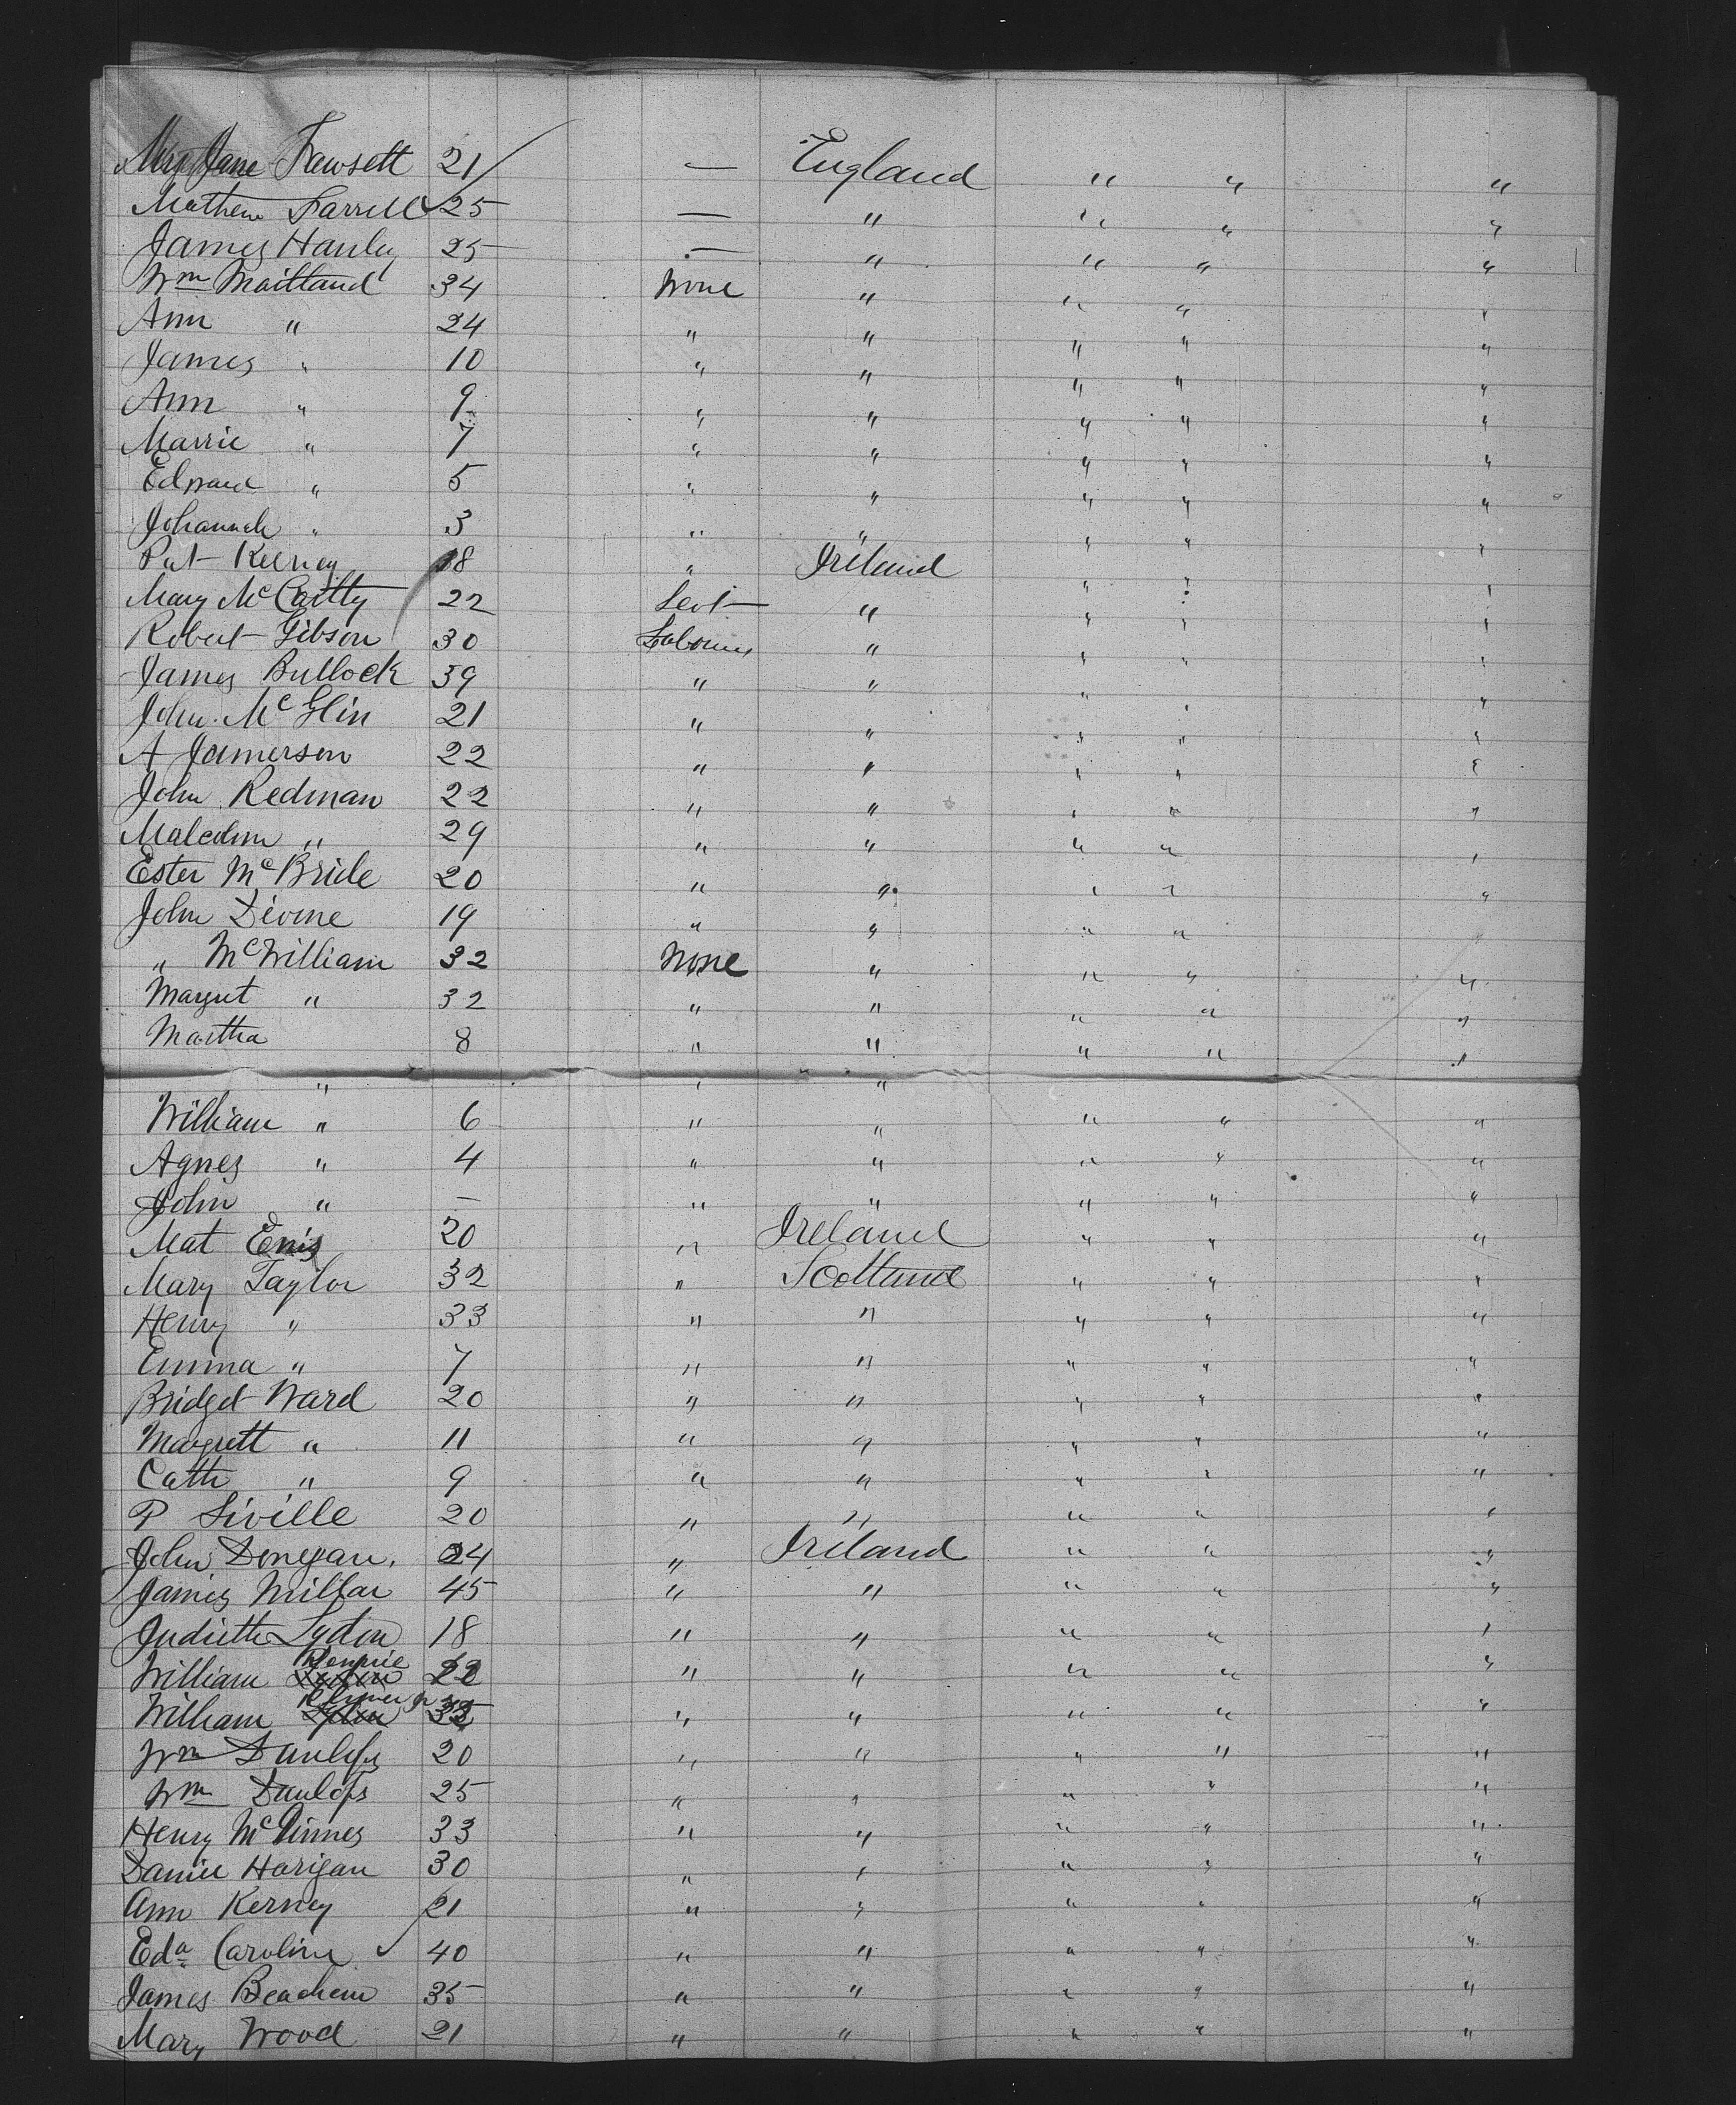 Mrs Jane Fawsett 21 — England " " "
Mathew Farrell 25 — " " " "
James Hanley 25 — " " " "
Wm Maitland 34 None " " " "
Ann " 24 " " " " "
James " 10 " " " " "
Ann " 9 " " " " "
Marrie " 7 " " " " "
Edward " 5 " " " " "
Johannah " 3 " " " " "
Pat Keerney 18 " Ireland " " "
Mary McCartty 22 " " " "
Robert Gibson 30 Labourer " " " "
James Bullock 39 " " " " "
John McGlin 21 " " " " "
A Jamerson 22 " " " " "
John Redman 22 " " " " "
Malcolm " 29 " " " " "
Ester McBride 20 " " " " "
John Divine 19 " " " " "
" McWilliam 32 None " " " "
Margret " 32 " " " " "
Martha 8 " " " " "
" " "
William " 6 " " " " "
Agnes " 4 " " " " "
John " — " " " " "
Mat Enis 20 " Ireland " " "
Mary Taylor 32 " Scotland " " "
Henry " 33 " " " " "
Emma " 7 " " " " "
Bridget Ward 20 " " " " "
Margrett " 11 " " " " "
Cath " 9 " " " " "
P Siville 20 " " " " "
John Donegan. 24 " Ireland " " "
James Millar 45 " " " " "
Judieth Lydon 18 " " " " "
William Rennie 22 " " " " "
William " " " " "
Wm Dunlops 20 " " " " "
Wm Dunlops 25 " " " " "
Henry McGinnes 33 " " " " "
Daniel Horigan 30 " " " " "
Ann Kerney 21 " " " " "
Eda Caroline 40 " " " " "
James Beachem 35 " " " " "
Mary Wood 21 " " " " "